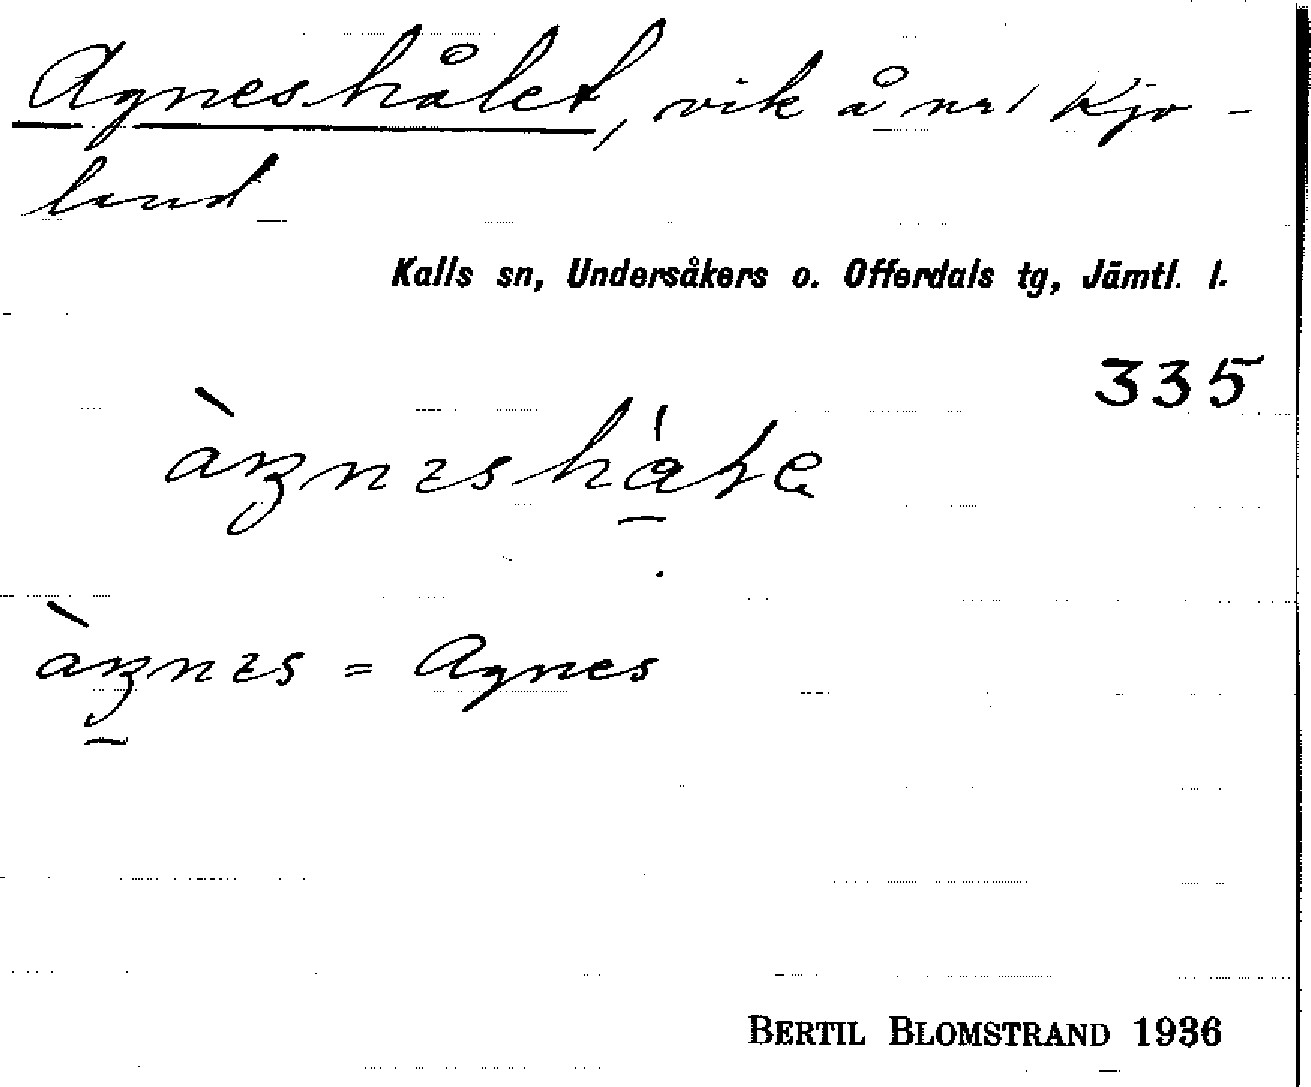 Agneshålet, vik å nr 1 Kjo-
land
Kalls sn, Undersåkers o. Offerdals tg, Jämtl. l.
335
= Agnes
BERTIL BLOMSTRAND 1936